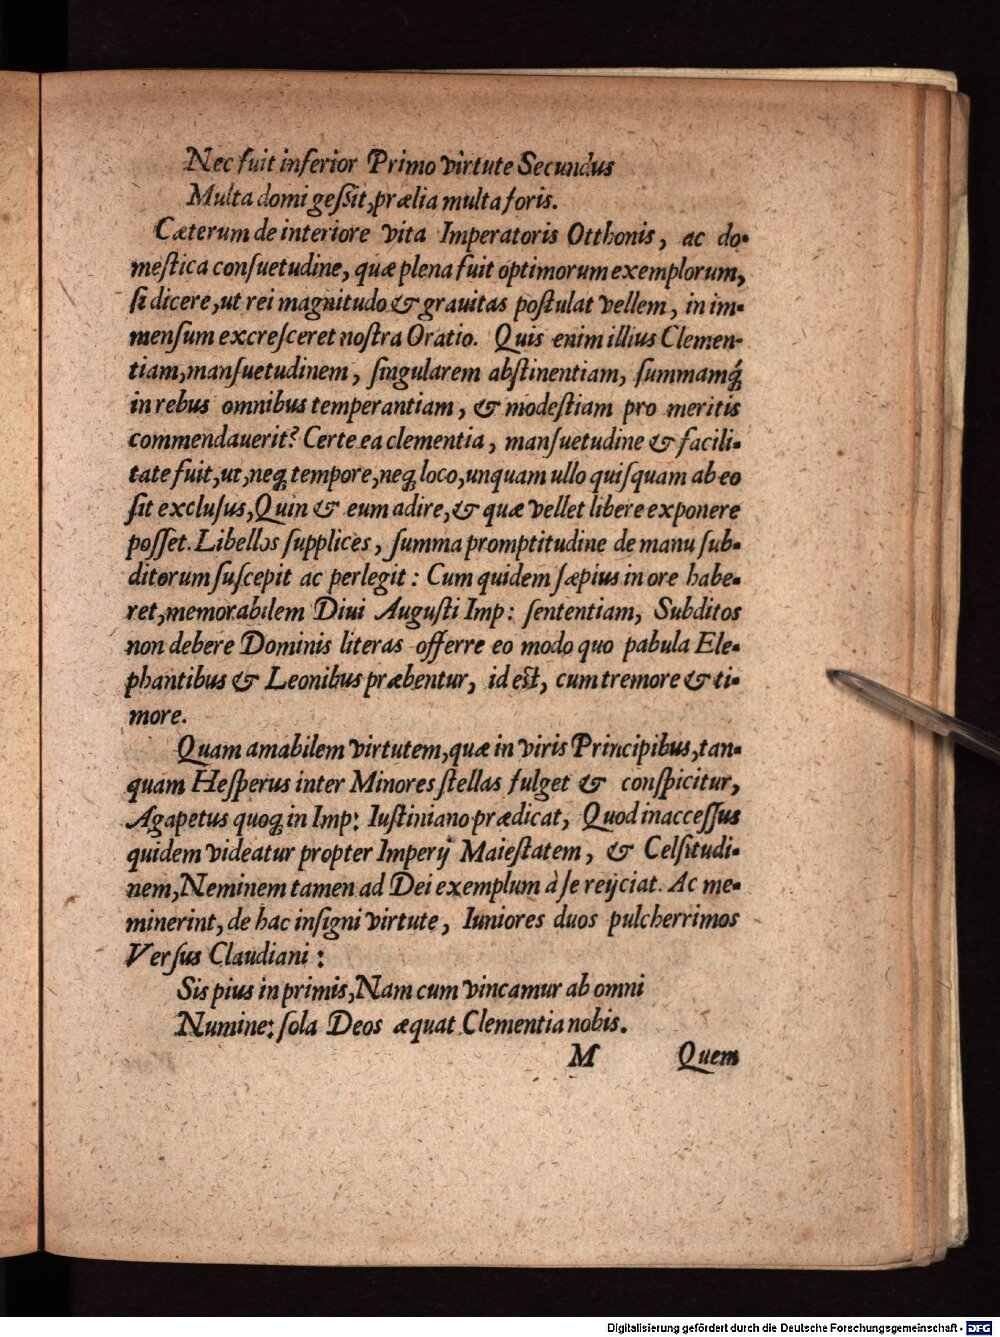 Nec fuit inferior Primo virtute Secundus
Multa domi geſsit, prælia multa foris.
Cæterum de interiore vita Imperatoris Otthonis, ac do-
meſtica conſuetudine, quæ plena fuit optimorum exemplorum,
ſi dicere, ut rei magnitudo & grauitas poſtulat vellem, in im-
menſum excreſceret noſtra Oratio. Quis enim illius Clemen-
tiam, manſuetudinem, ſingularem abſtinentiam, ſummamq́;
in rebus omnibus temperantiam, & modeſtiam pro meritis
commendauerit? Certe ea clementia, manſuetudine & facili-
tate fuit, ut, neq; tempore, neq; loco, unquam ullo quiſquam ab eo
ſit excluſus, Quin & eum adire, & quæ vellet libere exponere
poſſet. Libellos ſupplices, ſumma promptitudine de manu ſub-
ditorum ſuſcepit ac perlegit: Cum quidem ſæpius in ore habe-
ret, memorabilem Diui Auguſti Imp: ſententiam, Subditos
non debere Dominis literas offerre eo modo quo pabula Ele-
phantibus & Leonibus præbentur, id eſt, cum tremore & ti-
more.
Quam amabilem virtutem, quæ in viris Principibus, tan-
quam Heſperus inter Minores ſtellas fulget & conſpicitur,
Agapetus quoq; in Imp: Iuſtiniano prædicat, Quod inacceſſus
quidem videatur propter Imperij Maieſtatem, & Celſitudi-
nem, Neminem tamen ad Dei exemplum à ſe reijciat. Ac me-
minerint, de hac inſigni virtute, Iuniores duos pulcherrimos
Verſus Claudiani:
Sis pius in primis, Nam cum vincamur ab omni
Numine: ſola Deos æquat Clementia nobis.
M Quem
Digitalisierung gefördert durch die Deutsche Forschungsgemeinschaft - DFG